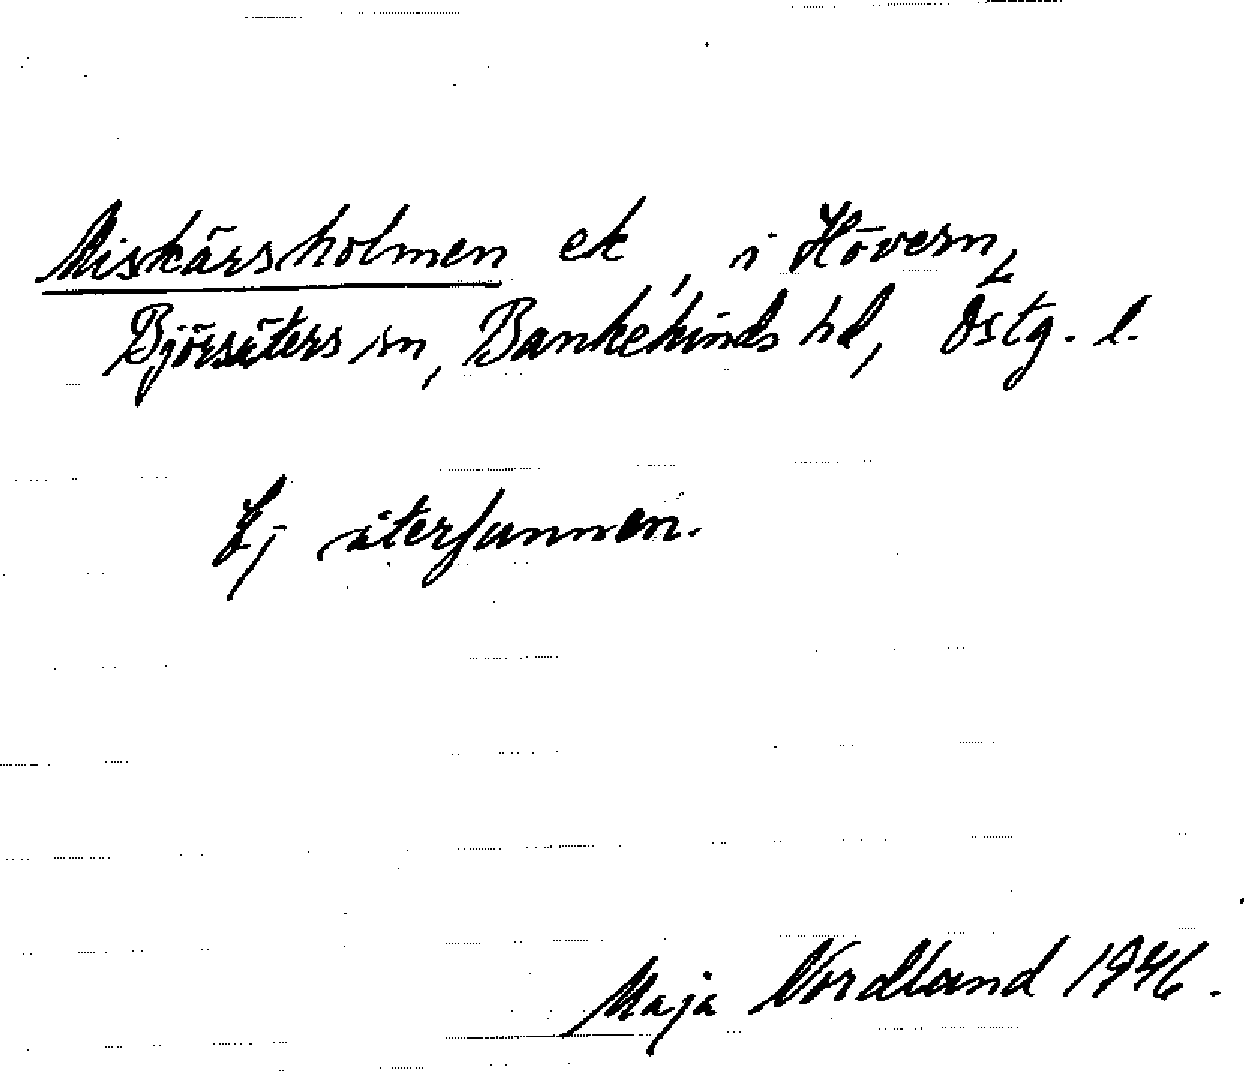 Miskärsholmen ek, i Hövern,
Björsäters sn, Bankekinds hd, Östg. l.
Ej återfunnen.
Maja Nordland 1946.